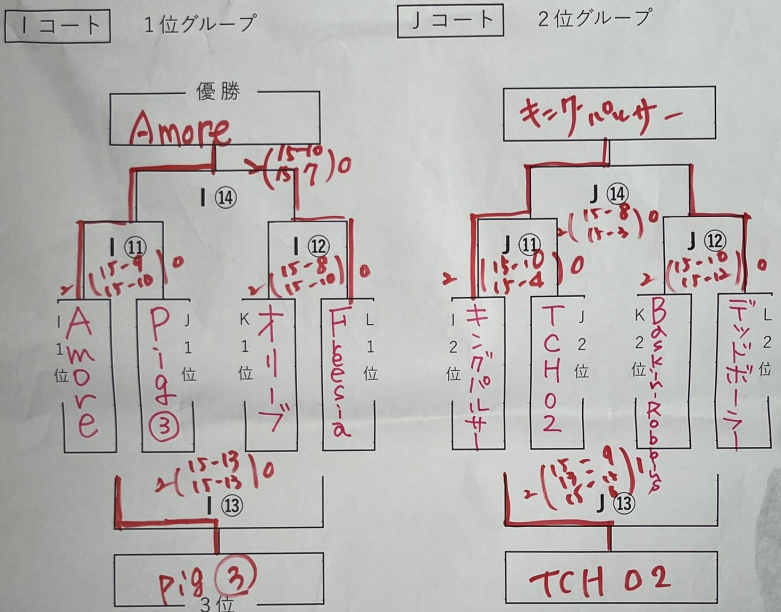 Iコート 1位グループ
優勝
Amore
2(15-10 15-7)0
I⑭
I⑪
2(15-9 15-10)0
I⑫
2(15-8 15-10)0
I1位 Amore
J1位 Pig③
K1位 オリーブ
L1位 Freesia
2(15-13 15-13)0
I⑬
pig③
3位
Jコート 2位グループ
キングパルサー
J⑭
2(15-8 15-3)0
J⑪
2(15-10 15-4)0
J⑫
2(15-10 15-12)0
I2位 キングパルサー
J2位 TCH02
K2位 Baskin-Robbins
L2位 デッドボーラー
J⑬
TCH02